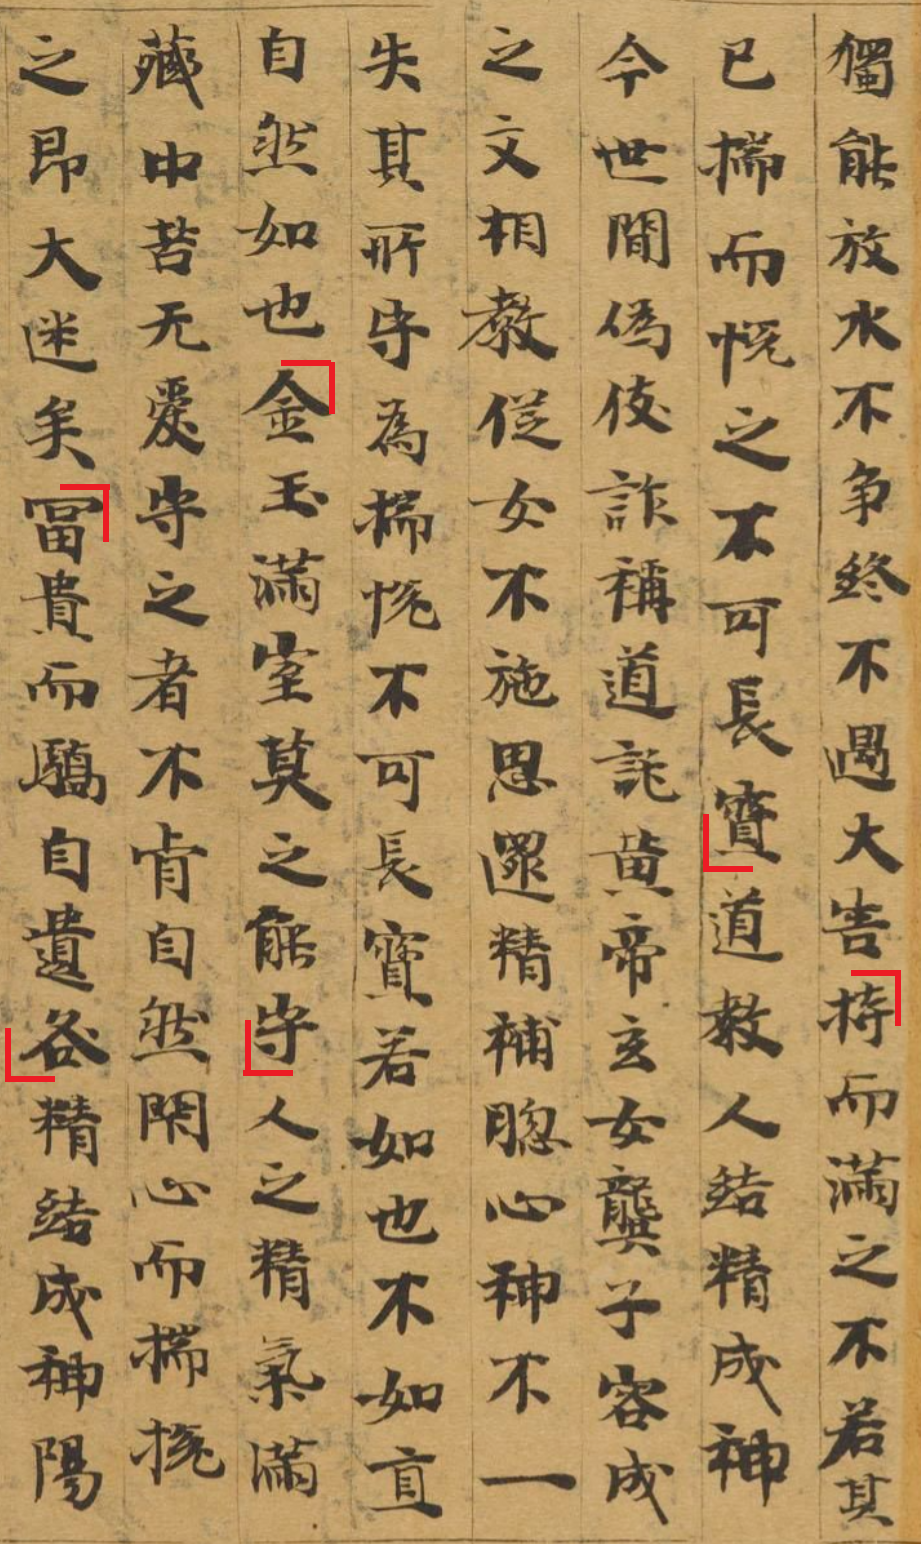 獨能放水不争終不遇大害持而滿之不若其
已揣而悅之不可長寶道教人結精成神
今世閒偽伎詐稱道託黃帝玄女龔子容成
之文相教從女不施思還精補腦心神不一
失其所守為揣悅不可長寶若如也不如直
自然如也金玉滿室莫之能守人之精氣滿
藏中苦无愛守之者不肯自然閇心而揣挩
之即大迷矣冨貴而驕自遺咎精結成神陽